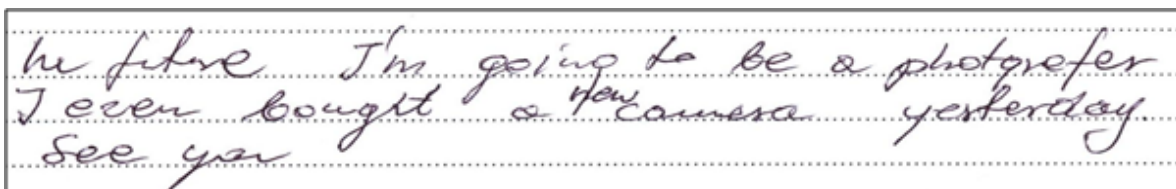 he future I'm going to be a photgrefer
I even bought a new camera yesterday.
See you